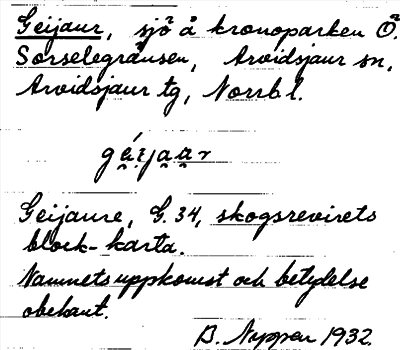 Geijaur, sjö å kronoparken Ö.
Sorselegränsen, Arvidsjaur sn,
Arvidsjaur tg, Norrb l.
géi̯jau̯r
Geijaure, G. 34, skogsrevirets
block-karta.
Namnets uppkomst och betydelse
obekant.
B. Nyppen 1932.